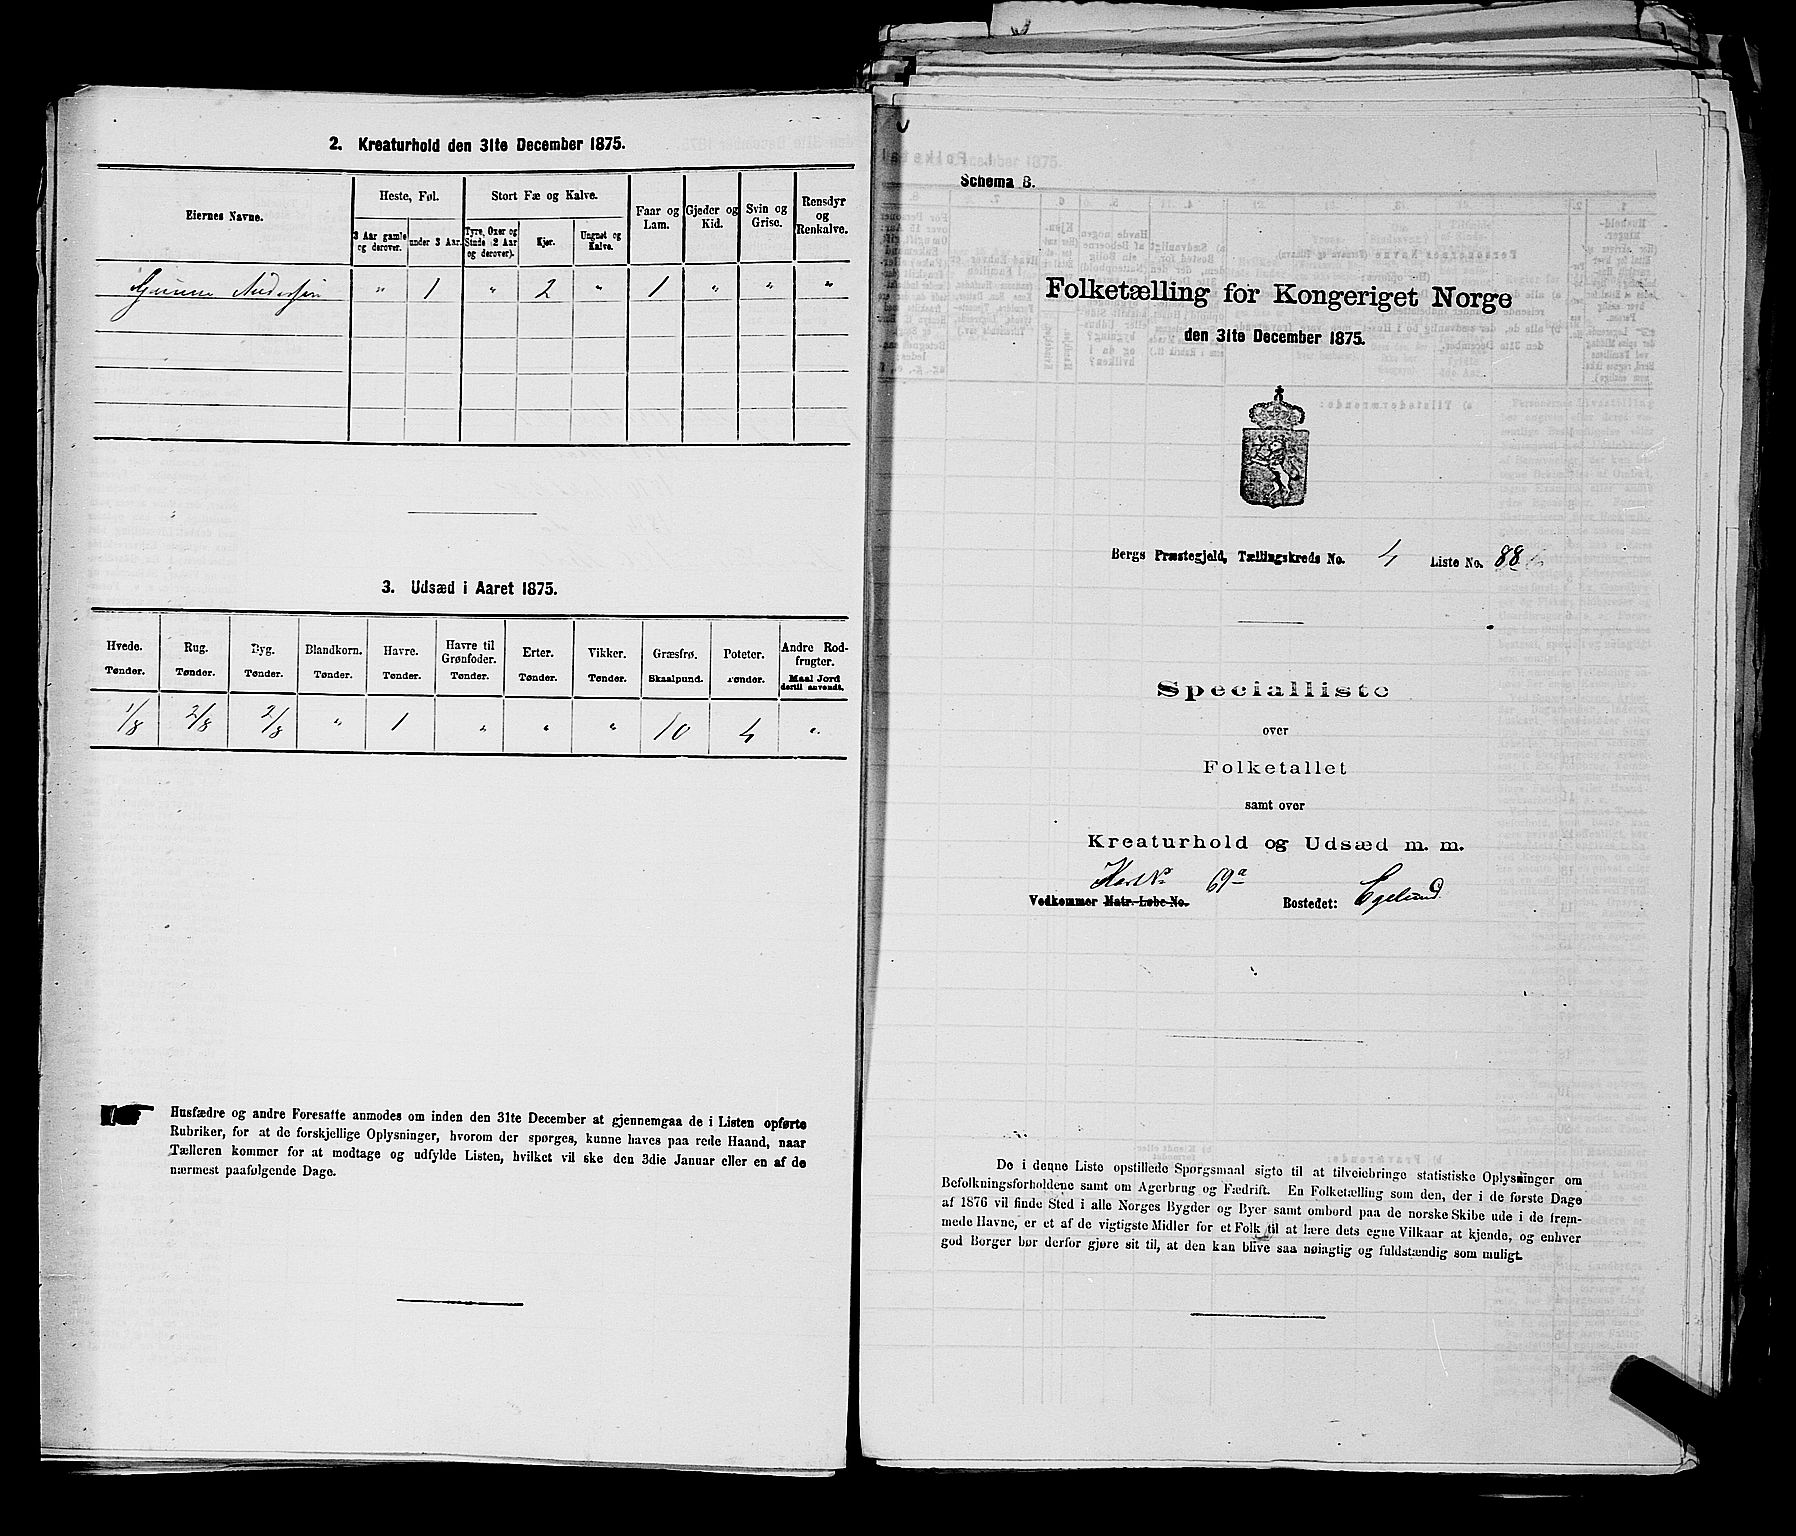 2. Kreaturhold den 31te December 1875.
Eiernes Navne.
Heste, Føl.
Stort Fæ og Kalve.
Faar og Lam.
Gjeder og Kid.
Svin og Grise.
Rensdyr og Renkalve.
3 Aar gamle og derover.
under 3 Aar.
Tyre, Oxer og Stude (2 Aar og derover).
Kjør.
Ungnøt og Kalve.
Andersen " 1 " 2 " 1 " " "
3. Udsæd i Aaret 1875.
Hvede. Rug. Byg. Blandkorn. Havre. Havre til Grønfoder. Erter. Vikker. Græsfrø. Poteter. Andre Rodfrugter.
Tønder. Tønder. Tønder. Tønder. Tønder. Tønder. Tønder. Tønder. Skaalpund. Tønder. Maal Jord dertil anvendt.
1/8 2/8 2/8 " 1 " " " 10 4 "
Husfædre og andre Foresatte anmodes om inden den 31te December at gjennemgaa de i Listen opførte
Rubriker, for at de forskjellige Oplysninger, hvorom der spørges, kunne haves paa rede Haand, naar
Tælleren kommer for at modtage og udfylde Listen, hvilket vil ske den 3die Januar eller en af de
nærmest paafølgende Dage.
Schema B.
Folketælling for Kongeriget Norge
den 31te December 1875.
Bergs Præstegjeld, Tællingskreds No. 4 Liste No. 88
Specialliste
over
Folketallet
samt over
Kreaturhold og Udsæd m. m.
No 69a
Vedkommer Matr.-Løbe-No. Bostedet: Egelund
De i denne Liste opstillede Spørgsmaal sigte til at tilveiebringe statistiske Oplysninger om
Befolkningsforholdene samt om Agerbrug og Fædrift. En Folketælling som den, der i de første Dage
af 1876 vil finde Sted i alle Norges Bygder og Byer samt ombord paa de norske Skibe ude i de frem-
mede Havne, er et af de vigtigste Midler for et Folk til at lære dets egne Vilkaar at kjende, og enhver
god Borger bør derfor gjøre sit til, at den kan blive saa nøiagtig og fuldstændig som muligt.